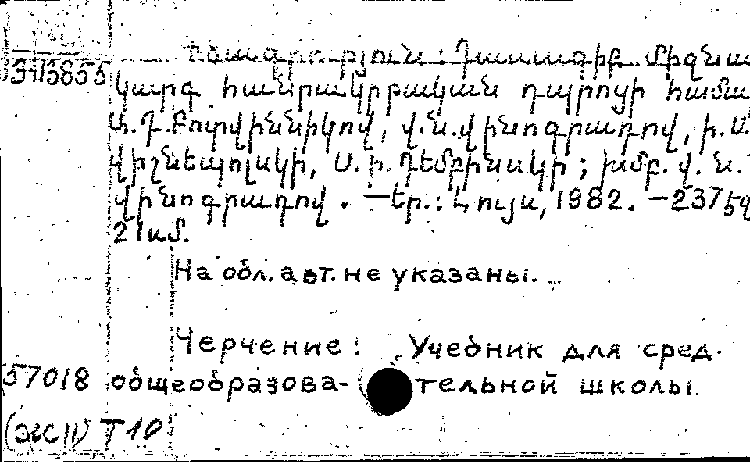 Գծագրություն: Դասագիրք միջնա
կարգ հանրակրթական դպրոցի համա
Ա.Դ.Բոտվիննիկով, Վ.Ն.Վինոգրադով, Ի.Ս.
Վիշնեպոլսկի, Ս.Ի.Դեմբինսկի; խմբ. Վ.Ն.
Վինոգրադով. — Եր.: Լույս, 1982. — 237 էջ
21 սմ.
На обл. авт. не указаны.
Черчение: Учебник для сред.
57018 общеобразова- тельной школы.
T10